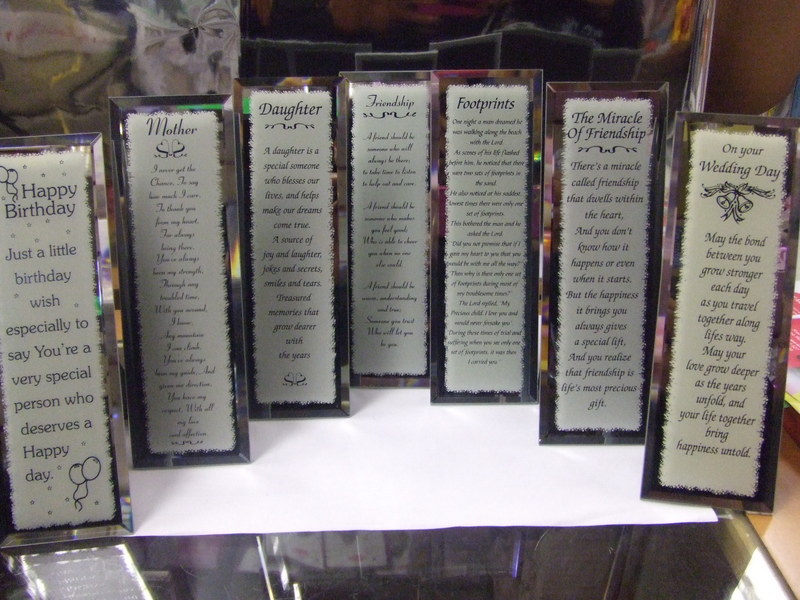 Happy
Birthday
Just a little
birthday
wish
especially to
say You're a
very special
person who
deserves a
Happy
day.
Mother
I never get the
Chance, To say
how much I care.
To thank you
from my heart,
For always
being there.
You've always
been my strength,
Through any
troubled time,
With you around,
I know,
Any mountain
I can climb.
You've always
been my guide, And
given me direction.
You have my
respect, With all
my love
and affection
Daughter
A daughter is a
special someone
who blesses our
lives, and helps
make our dreams
come true.
A source of
joy and laughter,
jokes and secrets,
smiles and tears.
Treasured
memories that
grow dearer
with
the years
Friendship
A friend should be
someone who will
always be there;
to take time to listen
to help out and care.
A friend should be
someone who makes
you feel good;
Who is able to cheer
you when no one
else could.
A friend should be
warm, understanding
and true;
Someone you trust
Who will let you
be you.
Footprints
One night a man dreamed he
was walking along the beach
with the Lord.
As scenes of his life flashed
before him, he noticed that there
were two sets of footprints in
the sand.
He also noticed at his saddest,
lowest times there were only one
set of footprints.
This bothered the man and he
asked the Lord.
"Did you not promise that if I
gave my heart to you that you
would be with me all the way?
Then why is there only one set
of footprints during most of
my troublesome times?"
The Lord replied, "My
Precious child, I love you and
would never forsake you.
During those times of trial and
suffering when you see only one
set of footprints, it was then
I carried you."
The Miracle
Of Friendship
There's a miracle
called friendship
that dwells within
the heart,
And you don't
know how it
happens or even
when it starts.
But the happiness
it brings you
always gives
a special lift,
And you realize
that friendship is
life's most precious
gift.
On your
Wedding Day
May the bond
between you
grow stronger
each day
as you travel
together along
lifes way.
May your
love grow deeper
as the years
unfold, and
your life together
bring
happiness untold.